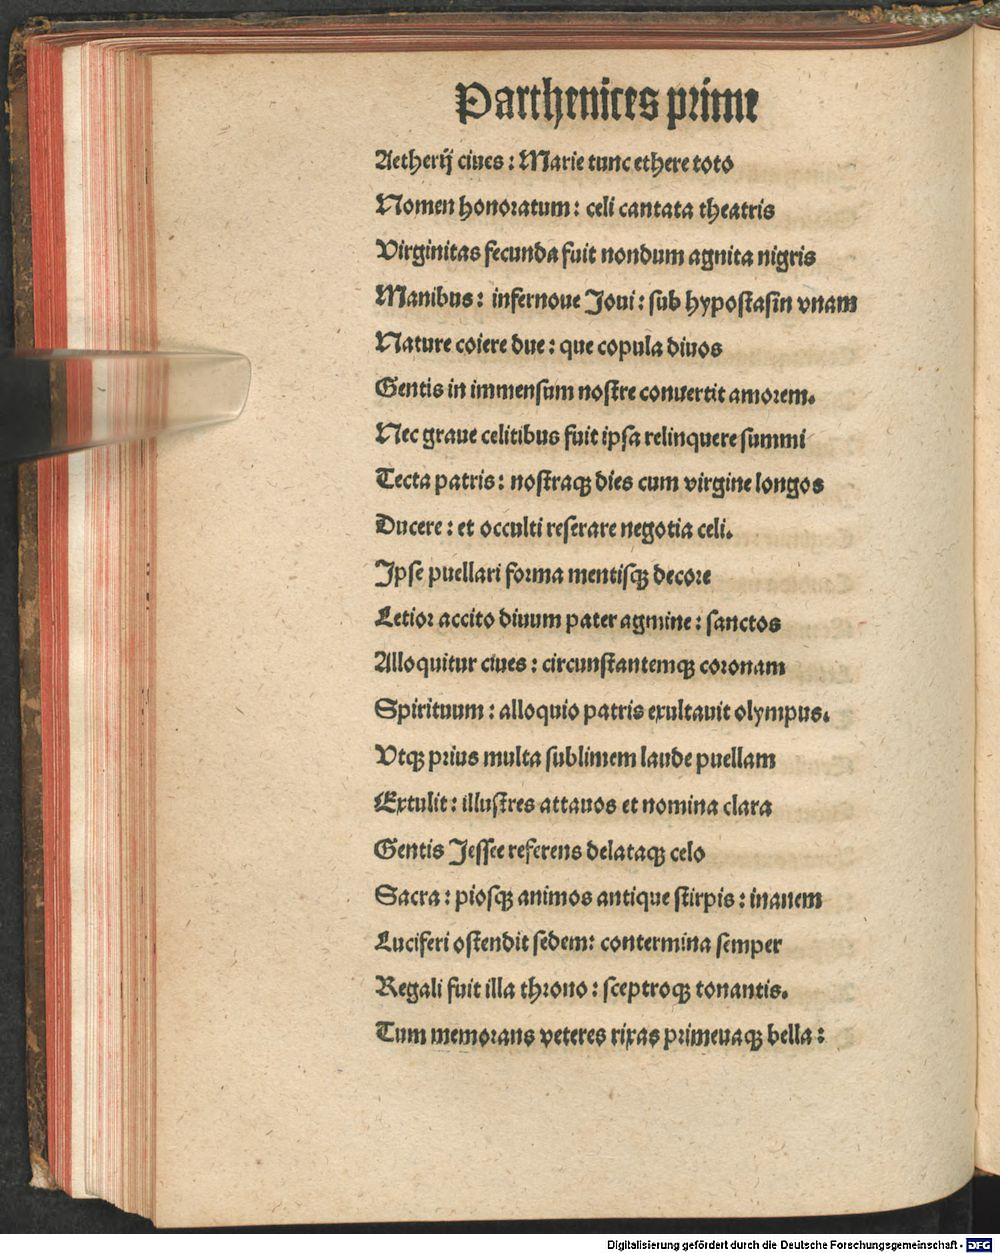 Parthenices prime
Aetherij ciues : Marie tunc ethere toto
Nomen honoratum : celi cantata theatris
Virginitas fecunda fuit nondum agnita nigris
Manibus : infernoue Joui : sub hypostasin vnam
Nature coiere due : que copula diuos
Gentis in immensum nostre conuertit amorem.
Nec graue celitibus fuit ipsa relinquere summi
Tecta patris : nostraqꝫ dies cum virgine longos
Ducere : et occulti reserare negotia celi.
Ipse puellari forma mentisqꝫ decore
Letior accito diuum pater agmine : sanctos
Alloquitur ciues : circunstantemqꝫ coronam
Spirituum : alloquio patris exultauit olympus.
Vtqꝫ prius multa sublimem laude puellam
Extulit : illustres attauos et nomina clara
Gentis Jessee referens delataqꝫ celo
Sacra : piosqꝫ animos antique stirpis : inanem
Luciferi ostendit sedem : contermina semper
Regali fuit illa throno : sceptroqꝫ tonantis.
Tum memorans veteres rixas primeuaqꝫ bella :
Digitalisierung gefördert durch die Deutsche Forschungsgemeinschaft - DFG